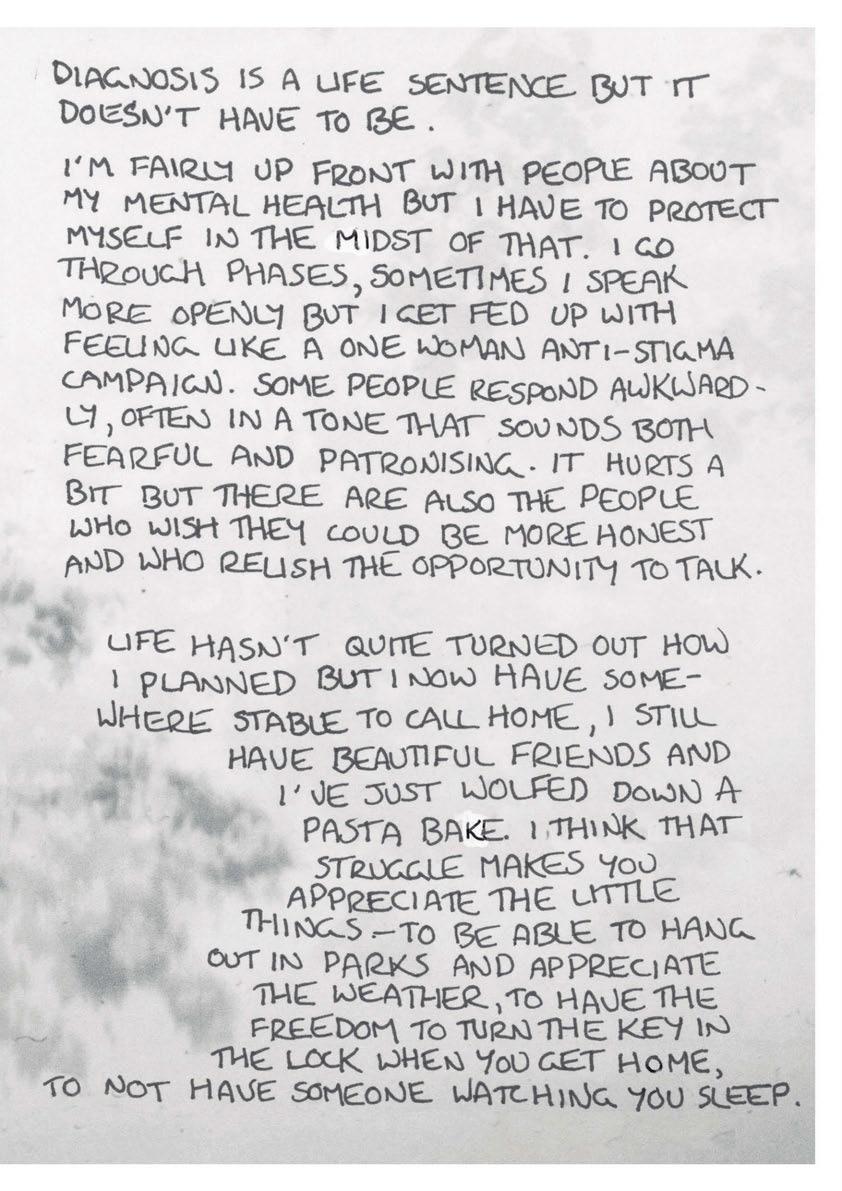 DIAGNOSIS IS A LIFE SENTENCE BUT IT
DOESN'T HAVE TO BE.
I'M FAIRLY UP FRONT WITH PEOPLE ABOUT
MY MENTAL HEALTH BUT I HAVE TO PROTECT
MYSELF IN THE MIDST OF THAT. I GO
THROUGH PHASES, SOMETIMES I SPEAK
MORE OPENLY BUT I GET FED UP WITH
FEELING LIKE A ONE WOMAN ANTI-STIGMA
CAMPAIGN. SOME PEOPLE RESPOND AWKWARD-
LY, OFTEN IN A TONE THAT SOUNDS BOTH
FEARFUL AND PATRONISING. IT HURTS A
BIT BUT THERE ARE ALSO THE PEOPLE
WHO WISH THEY COULD BE MORE HONEST
AND WHO RELISH THE OPPORTUNITY TO TALK.
LIFE HASN'T QUITE TURNED OUT HOW
I PLANNED BUT I NOW HAVE SOME-
WHERE STABLE TO CALL HOME, I STILL
HAVE BEAUTIFUL FRIENDS AND
I'VE JUST WOLFED DOWN A
PASTA BAKE. I THINK THAT
STRUGGLE MAKES YOU
APPRECIATE THE LITTLE
THINGS - TO BE ABLE TO HANG
OUT IN PARKS AND APPRECIATE
THE WEATHER, TO HAVE THE
FREEDOM TO TURN THE KEY IN
THE LOCK WHEN YOU GET HOME,
TO NOT HAVE SOMEONE WATCHING YOU SLEEP.